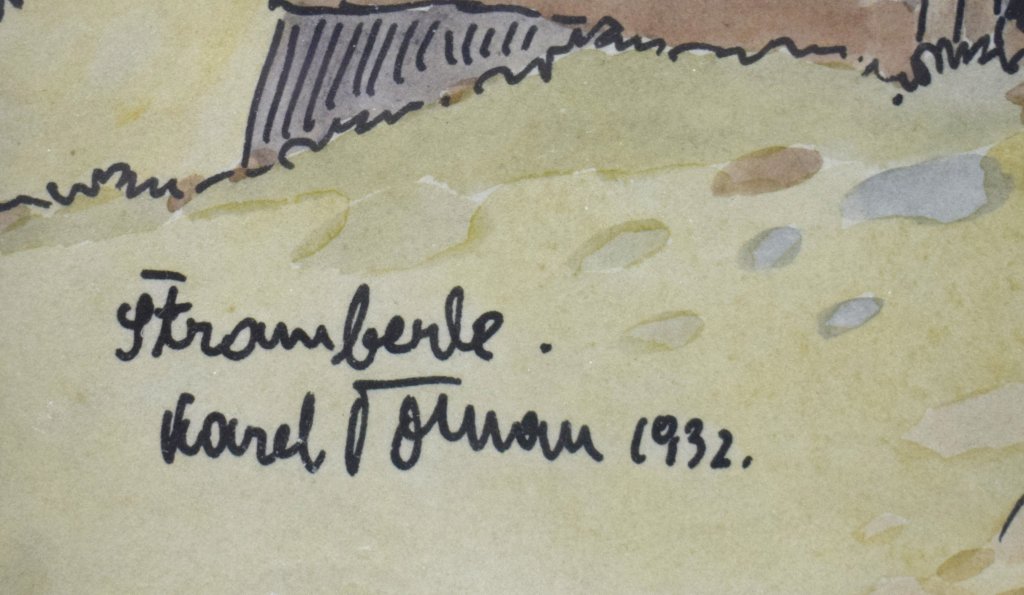 Štramberk.
Karel Toman 1932.